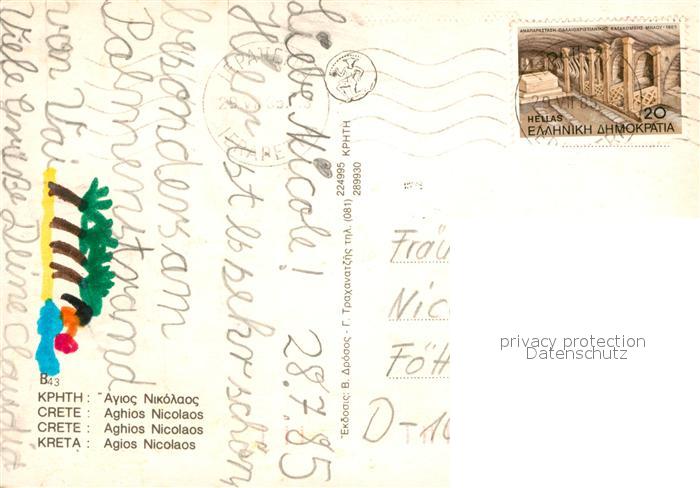 Liebe Nicole! 28.7.85
Hier ist es sehr schön
besonders am
Palmenstrand
von Vai
Viele Grüße Deine Claudia
B43
ΚΡΗΤΗ : Ἅγιος Νικόλαος
CRETE : Aghios Nicolaos
CRETE : Aghios Nicolaos
KRETA : Agios Nicolaos
Ἔκδοσις: Β. Δρόσος - Γ. Τραχανατζής τηλ. (081) 224995 289930 ΚΡΗΤΗ
ΑΝΑΠΑΡΑΣΤΑΣΗ ΠΑΛΑΙΟΧΡΙΣΤΙΑΝΙΚΗΣ ΚΑΤΑΚΟΜΒΗΣ ΜΗΛΟΥ - 1985
20
HELLAS
ΕΛΛΗΝΙΚΗ ΔΗΜΟΚΡΑΤΙΑ
29 VII 85
Fräu
Nic
Föh
D-14
privacy protection
Datenschutz